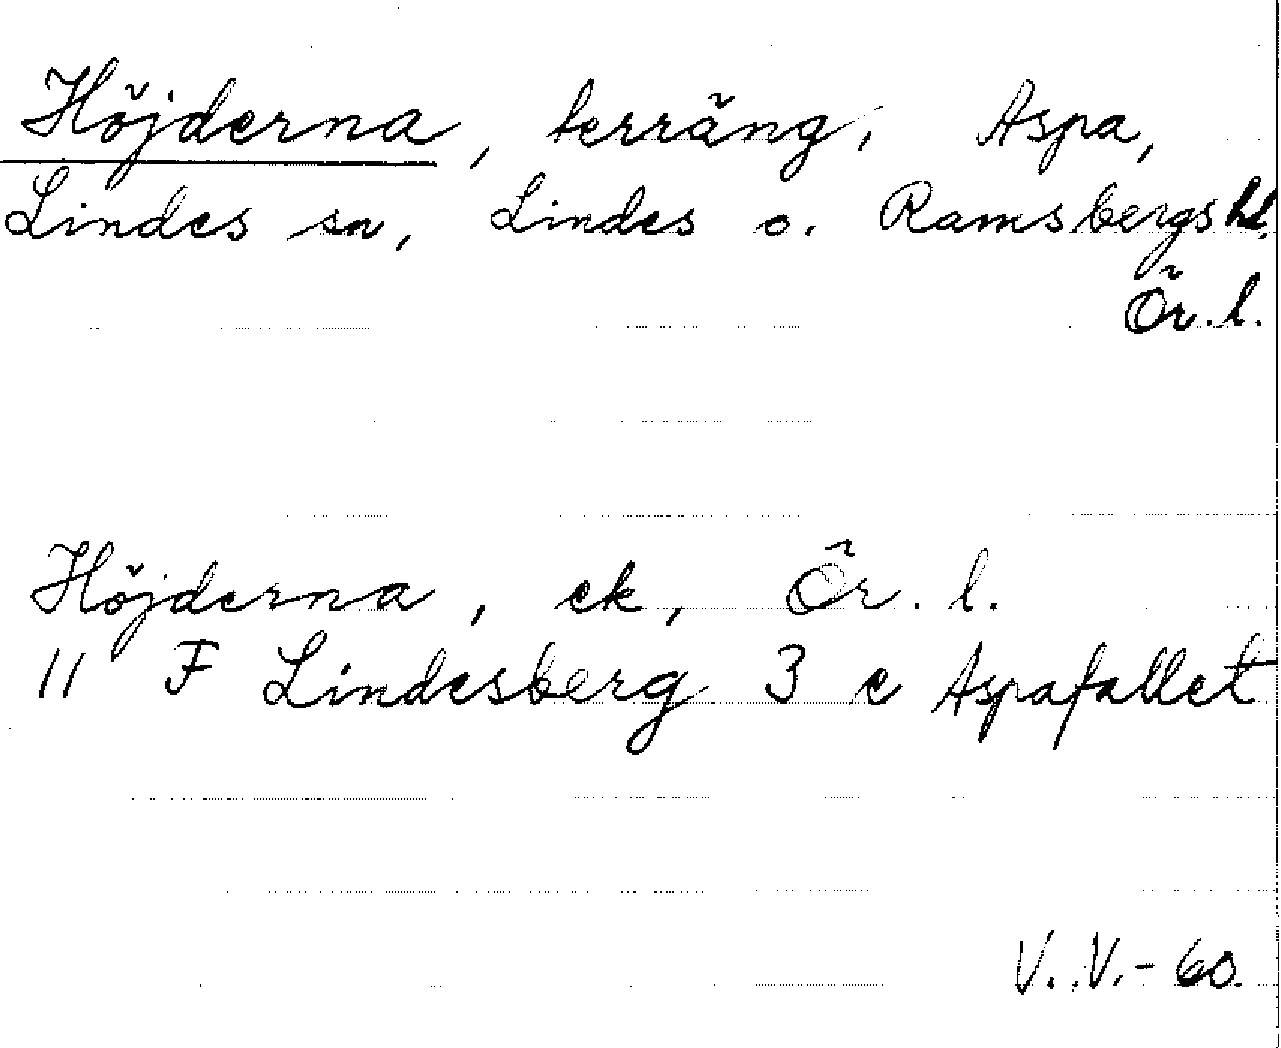 Höjderna, terräng, Aspa,
Lindes sn, Lindes o. Ramsbergs hd.
Ör. l.
Höjderna, ek, Ör. l.
11 F Lindesberg 3 c Aspafallet
V. V. - 60.